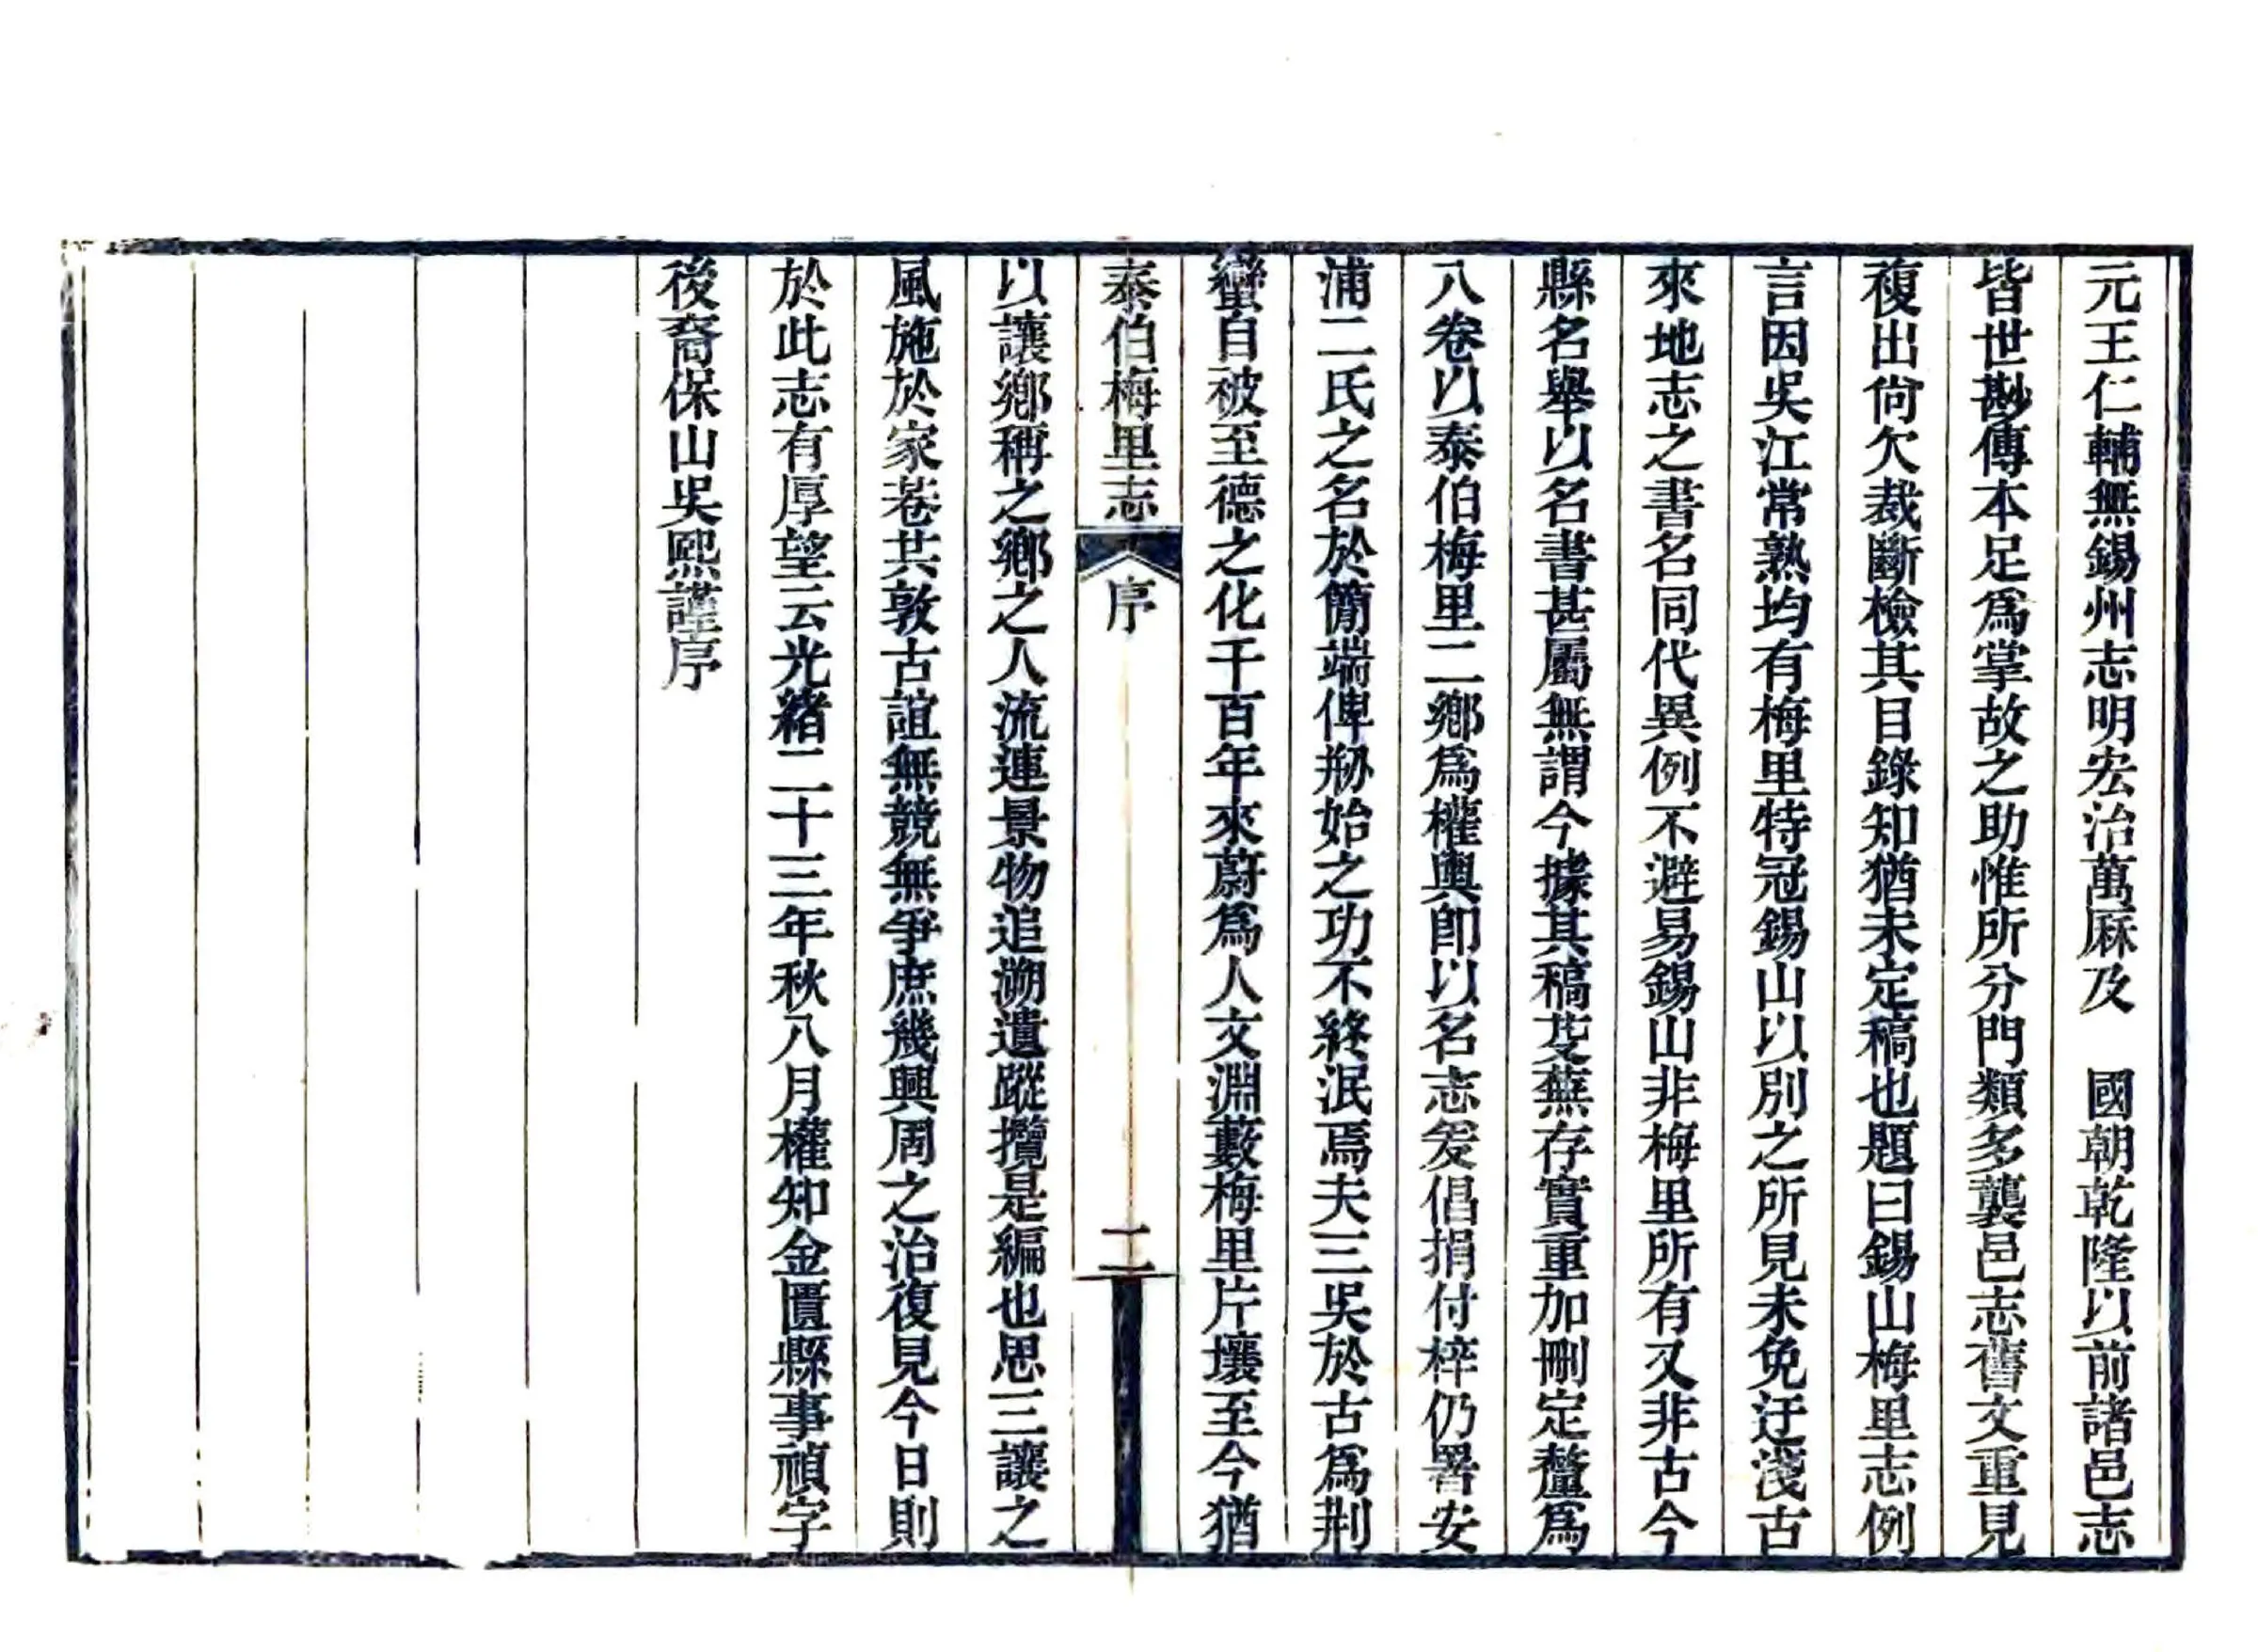 元王仁輔無錫州志明宏治萬厤及　國朝乾隆以前諸邑志
皆世尠傳本足爲掌故之助惟所分門類多襲邑志舊文重見
複出尙欠裁斷檢其目錄知猶未定稿也題曰錫山梅里志例
言因吳江常熟均有梅里特冠錫山以別之所見未免迂淺古
來地志之書名同代異例不避易錫山非梅里所有又非古今
縣名舉以名書甚屬無謂今據其稿芟蕪存實重加刪定釐爲
八卷以泰伯梅里二鄉爲權輿卽以名志爰倡捐付梓仍署安
浦二氏之名於簡端俾剏始之功不終泯焉夫三吳於古爲荆
蠻自被至德之化千百年來蔚爲人文淵藪梅里片壤至今猶
泰伯梅里志　序　二
以讓鄉稱之鄉之人流連景物追溯遺蹤攬是編也思三讓之
風施於家巷共敦古誼無競無爭庶幾興周之治復見今日則
於此志有厚望云光緒二十三年秋八月權知金匱縣事禎字
後裔保山吳熙謹序